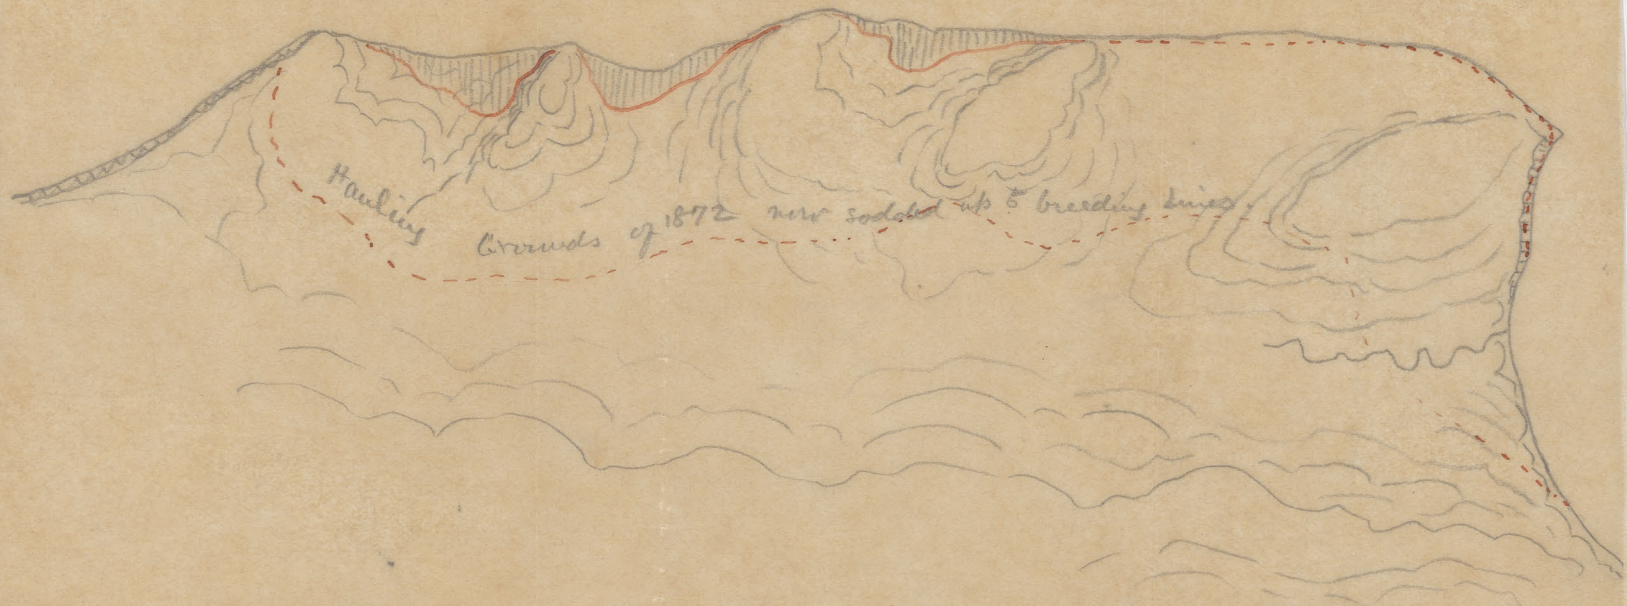 Hauling Grounds of 1872 now sodded up to breeding lines.